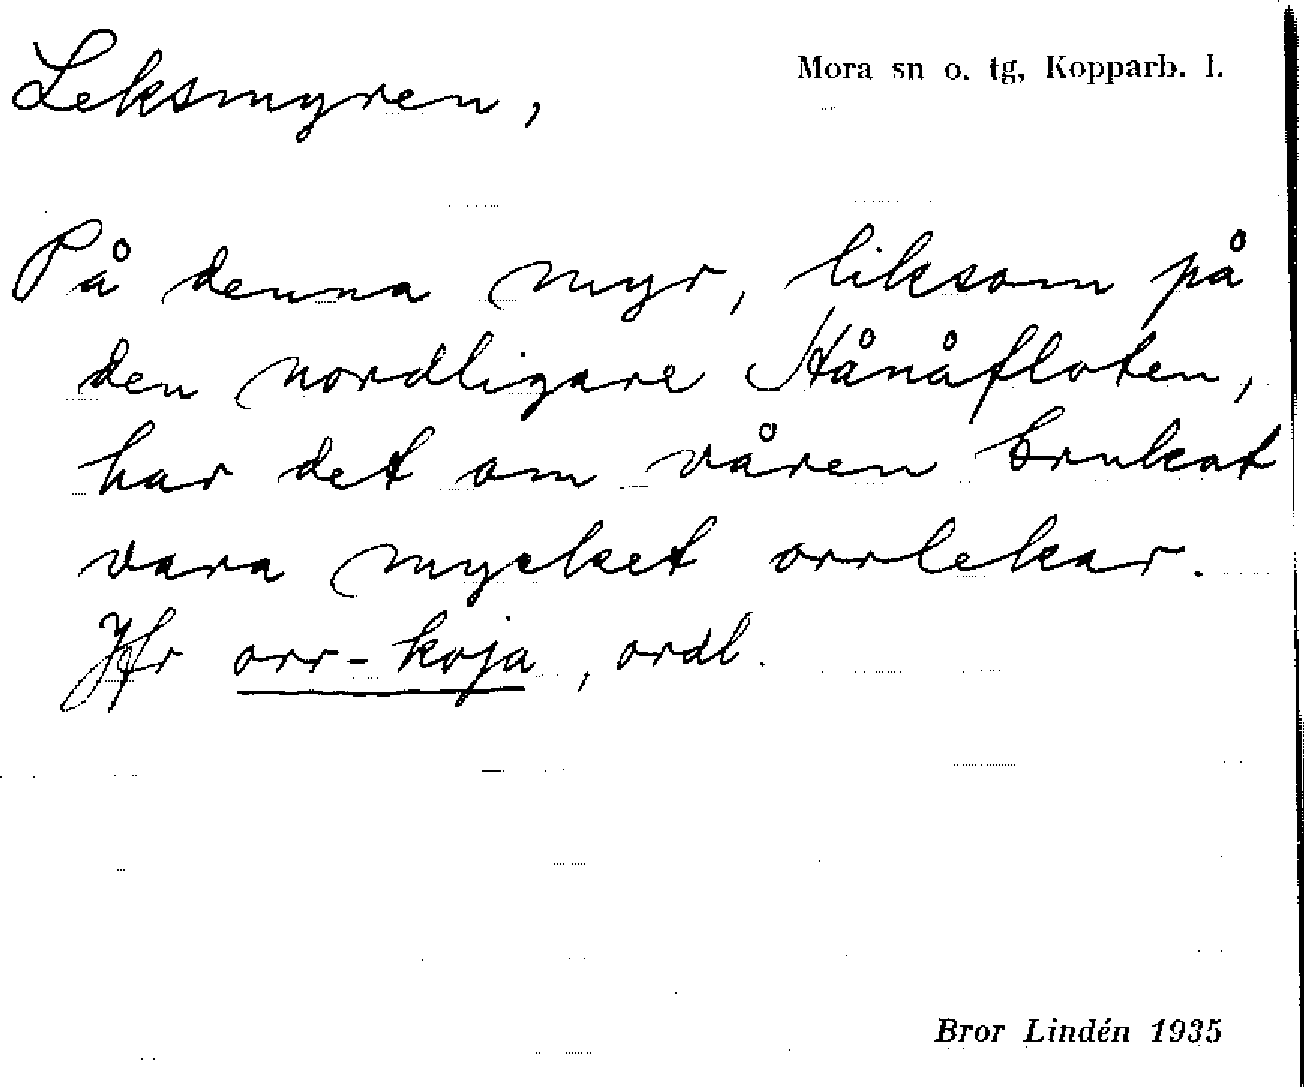 Mora sn o. tg, Kopparb. l.
Leksmyren,
På denna myr, liksom på
den nordligare Hånåfloten,
har det om våren brukat
vara mycket orrlekar.
Jfr orr-koja, ordl.
Bror Lindén 1935